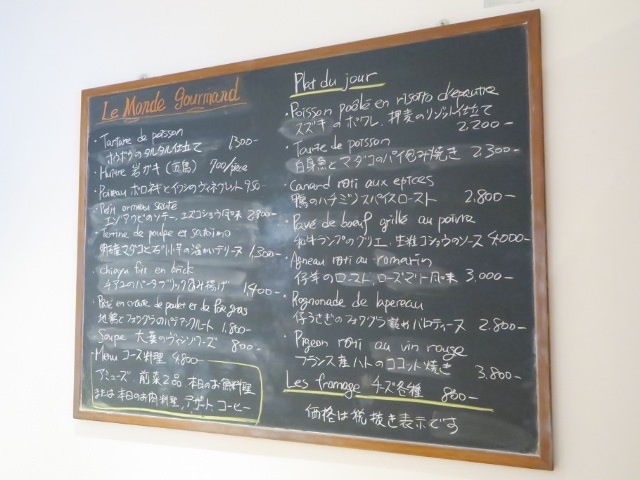 Le Monde Gourmand
・Tartare de poisson
ホウボウのタルタル仕立て 1300-
・Huitre 岩ガキ 900/piece
・Poireau ポロネギとイワシのヴィネグレット 950-
・Petit ormeau sauté
エゾアワビのソテー、ユズコショウ風味 2800-
・Terrine de poulpe et satoimo
明石産マダコと石川小芋の温かいテリーヌ 1,300-
en brick
1,400-
・Pâté en croûte de poulet et de foie gras
地鶏とフォワグラのパテアンクルート 1.800-
・Soupe 大葉のヴィシソワーズ 800-
・Menu コース料理 4,800-
アミューズ 前菜2品 本日のお魚料理
または本日のお肉料理、デザート コーヒー
Plat du jour
・Poisson poêlé en risotto d'epeautre
スズキのポワレ、押麦のリゾット仕立て
2,200-
・Tourte de poisson
白身魚とマダコのパイ包み焼き 2.300-
・Canard roti aux epices
鴨のハチミツスパイスロースト 2.800-
・Pavé de bœuf grillé au poivre
和牛ランプのグリエ、生粒コショウのソース 4000-
・Agneau roti au romarin
仔羊のロースト、ローズマリー風味 3,000-
・Rognonade de lapereau
仔うさぎのフォワグラ バロティーヌ 2.800-
・Pigeon roti au vin rouge
フランス産ハトのココット焼き 3.800-
Les fromage チーズ各種 800-
価格は税抜き表示です